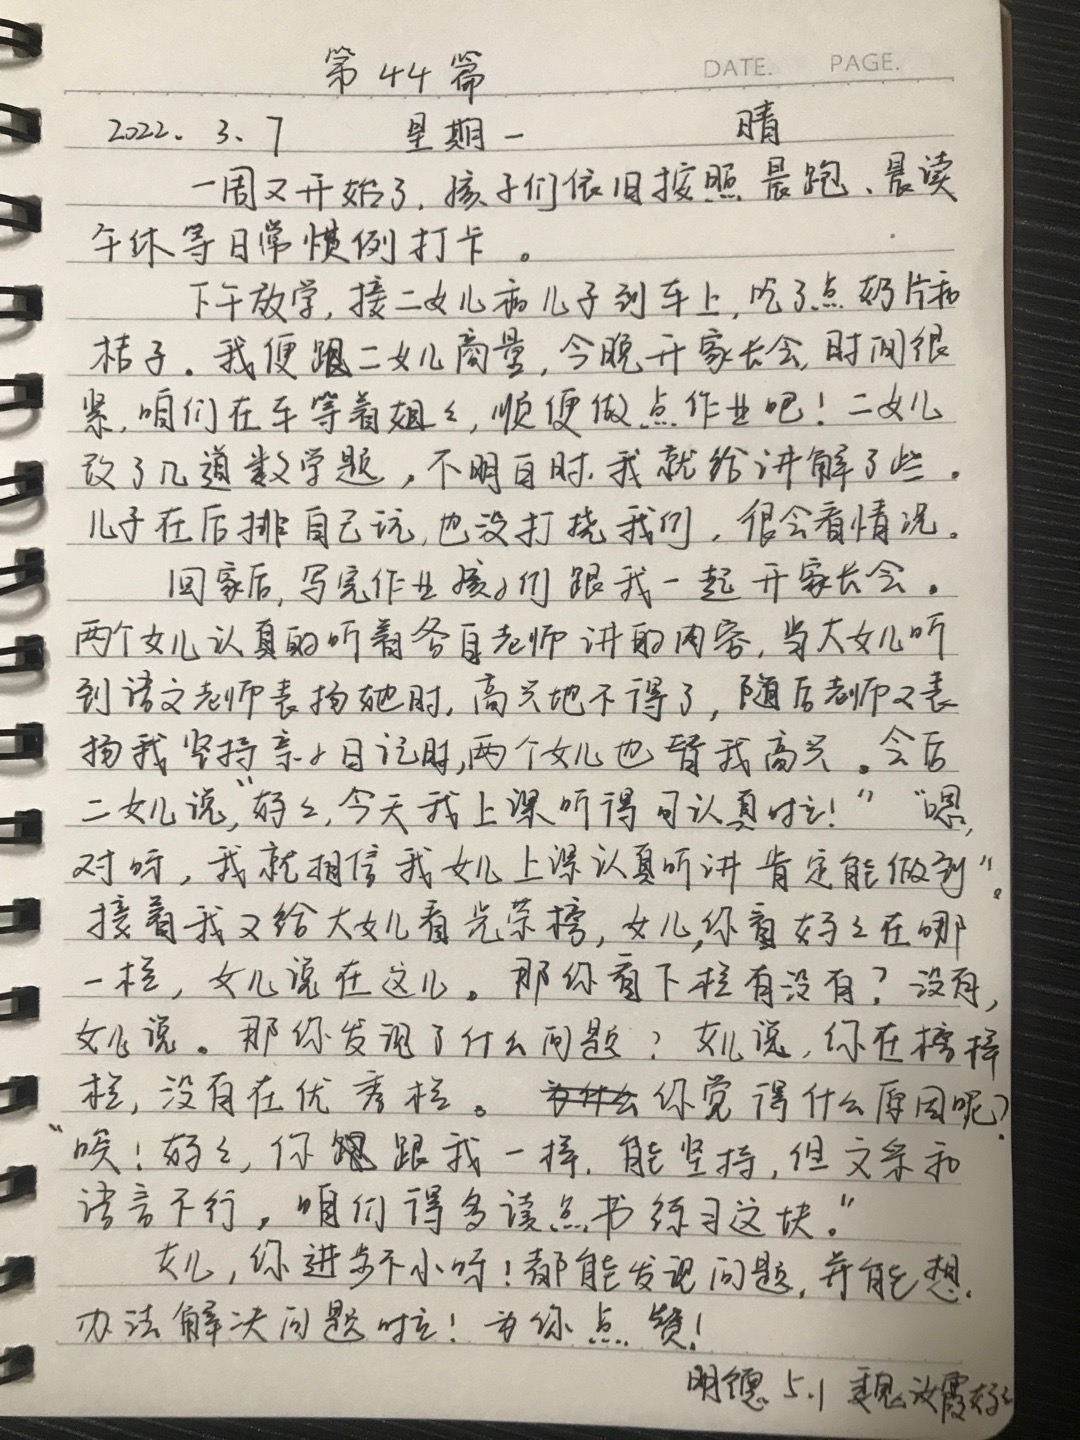 DATE. PAGE.
第44篇
2022.3.7 星期一 晴
一周又开始了,孩子们依旧按照晨跑、晨读
午休等日常惯例打卡。
下午放学,接二女儿和儿子到车上,吃了点奶片和
桔子。我便跟二女儿商量,今晚开家长会,时间很
紧,咱们在车等着姐々,顺便做点作业吧!二女儿
改了几道数学题,不明白时,我就给讲解了些。
儿子在后排自己玩,也没打挠我们,很会看情况。
回家后,写完作业孩子们跟我一起开家长会。
两个女儿认真的听着各自老师讲的内容,当大女儿听
到语文老师表扬她时,高兴地不得了,随后老师又表
扬我坚持亲子日记时,两个女儿也替我高兴。会后
二女儿说,“妈々,今天我上课听得可认真啦!”“嗯,
对呀,我就相信我女儿上课认真听讲肯定能做到”。
接着我又给大女儿看光荣榜,女儿,你看妈々在哪
一栏,女儿说在这儿。那你看下栏有没有?没有,
女儿说。那你发现了什么问题?女儿说,你在榜样
栏,没有在优秀栏。你觉得什么原因呢?
“唉!妈々,你跟我一样,能坚持,但文采和
语言不行,咱们得多读点书练习这块。”
女儿,你进步不小呀!都能发现问题,并能想
办法解决问题啦!为你点赞!
明德5.1 魏汝霞妈々